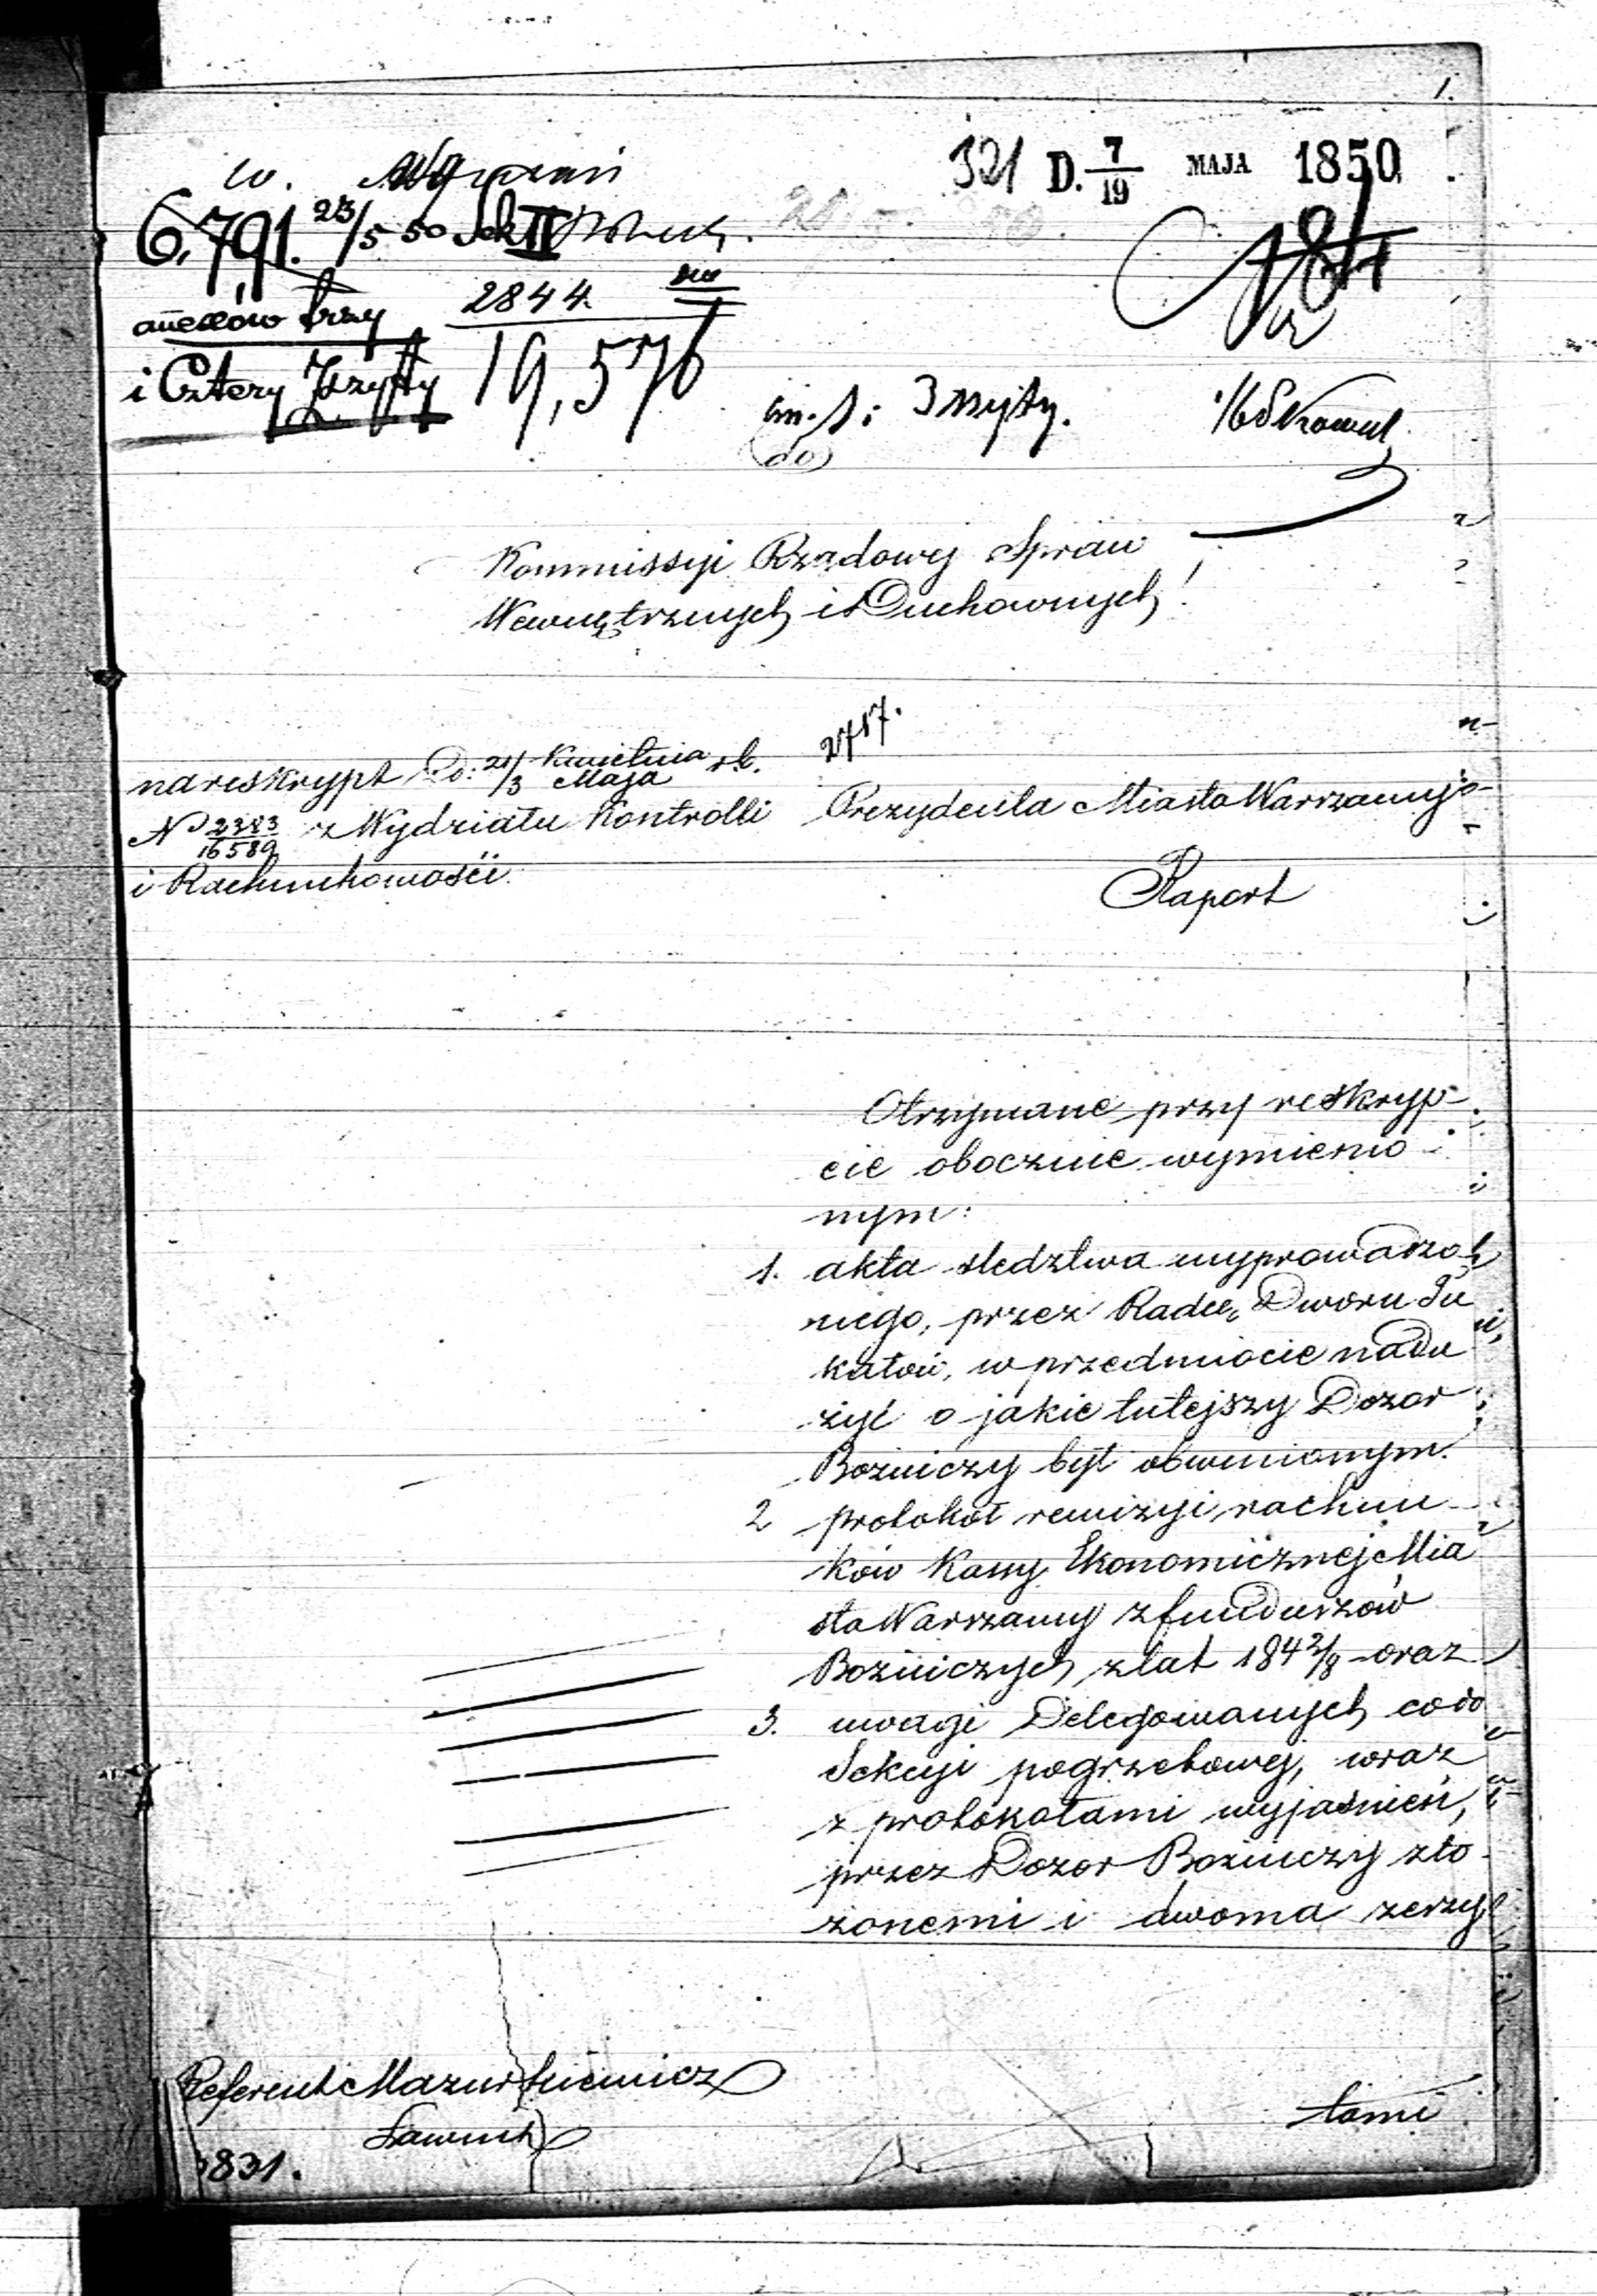 1.
321 D. 7/19 MAJA 1850
w.
6,791. 23/5 50 Sek IV
anexów trzy 2844
i Cztery Zszyty 19,576
3 zszyty.
Kommissyi Rządowej Spraw
Wewnętrznych i Duchownych!
2717.
na reskrypt D: 21/3 Kwietnia/Maja r.b.
N° 2383/16589 z Wydziału Kontrolli
i Rachunkowości.
Prezydenta Miasta Warszawy
Raport
Otrzymane przy reskryp-
cie obocznie wymienio-
nym:
1. akta sledztwa wyprowadzo-
nego, przez Radcę Dworu Tu
kałow, w przedmiocie nadu
żyć o jakie tutejszy Dozor
Bożniczy był obwinionym.
2 protokół rewizyi rachun-
ków Kassy Ekonomicznej Mia
sta Warszawy z funduszów
Bożniczych z lat 184 2/8 oraz
3. uwagi Delegowanych co do
Sekcyi pogrzebowej, wraz
z protokołami wyjaśnień,
przez Dozor Bożniczy zło-
żonemi i dwoma zerzy
tami
Referent Mazurkiewicz
831.